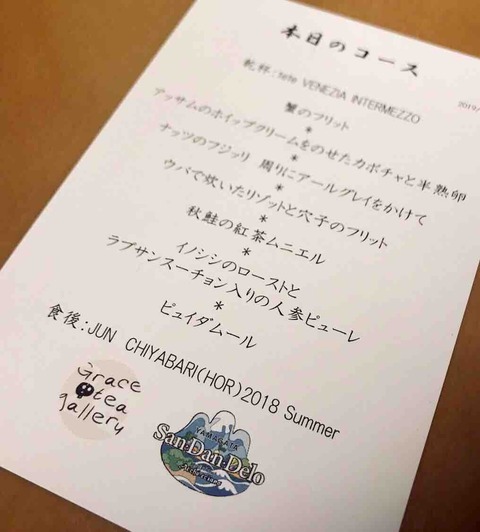 本日のコース
乾杯:tete VENEZIA INTERMEZZO
2019/
蟹のフリット
*
アッサムのホイップクリームをのせたカボチャと半熟卵
*
ナッツのフジッリ 周りにアールグレイをかけて
*
ウバで炊いたリゾットと穴子のフリット
*
秋鮭の紅茶ムニエル
*
イノシシのローストと
ラプサンスーチョン入りの人参ピューレ
*
ピュイダムール
食後:JUN CHIYABARI(HOR)2018 Summer
Grace
tea
gallery
YAMAGATA
San·Dan·Delo